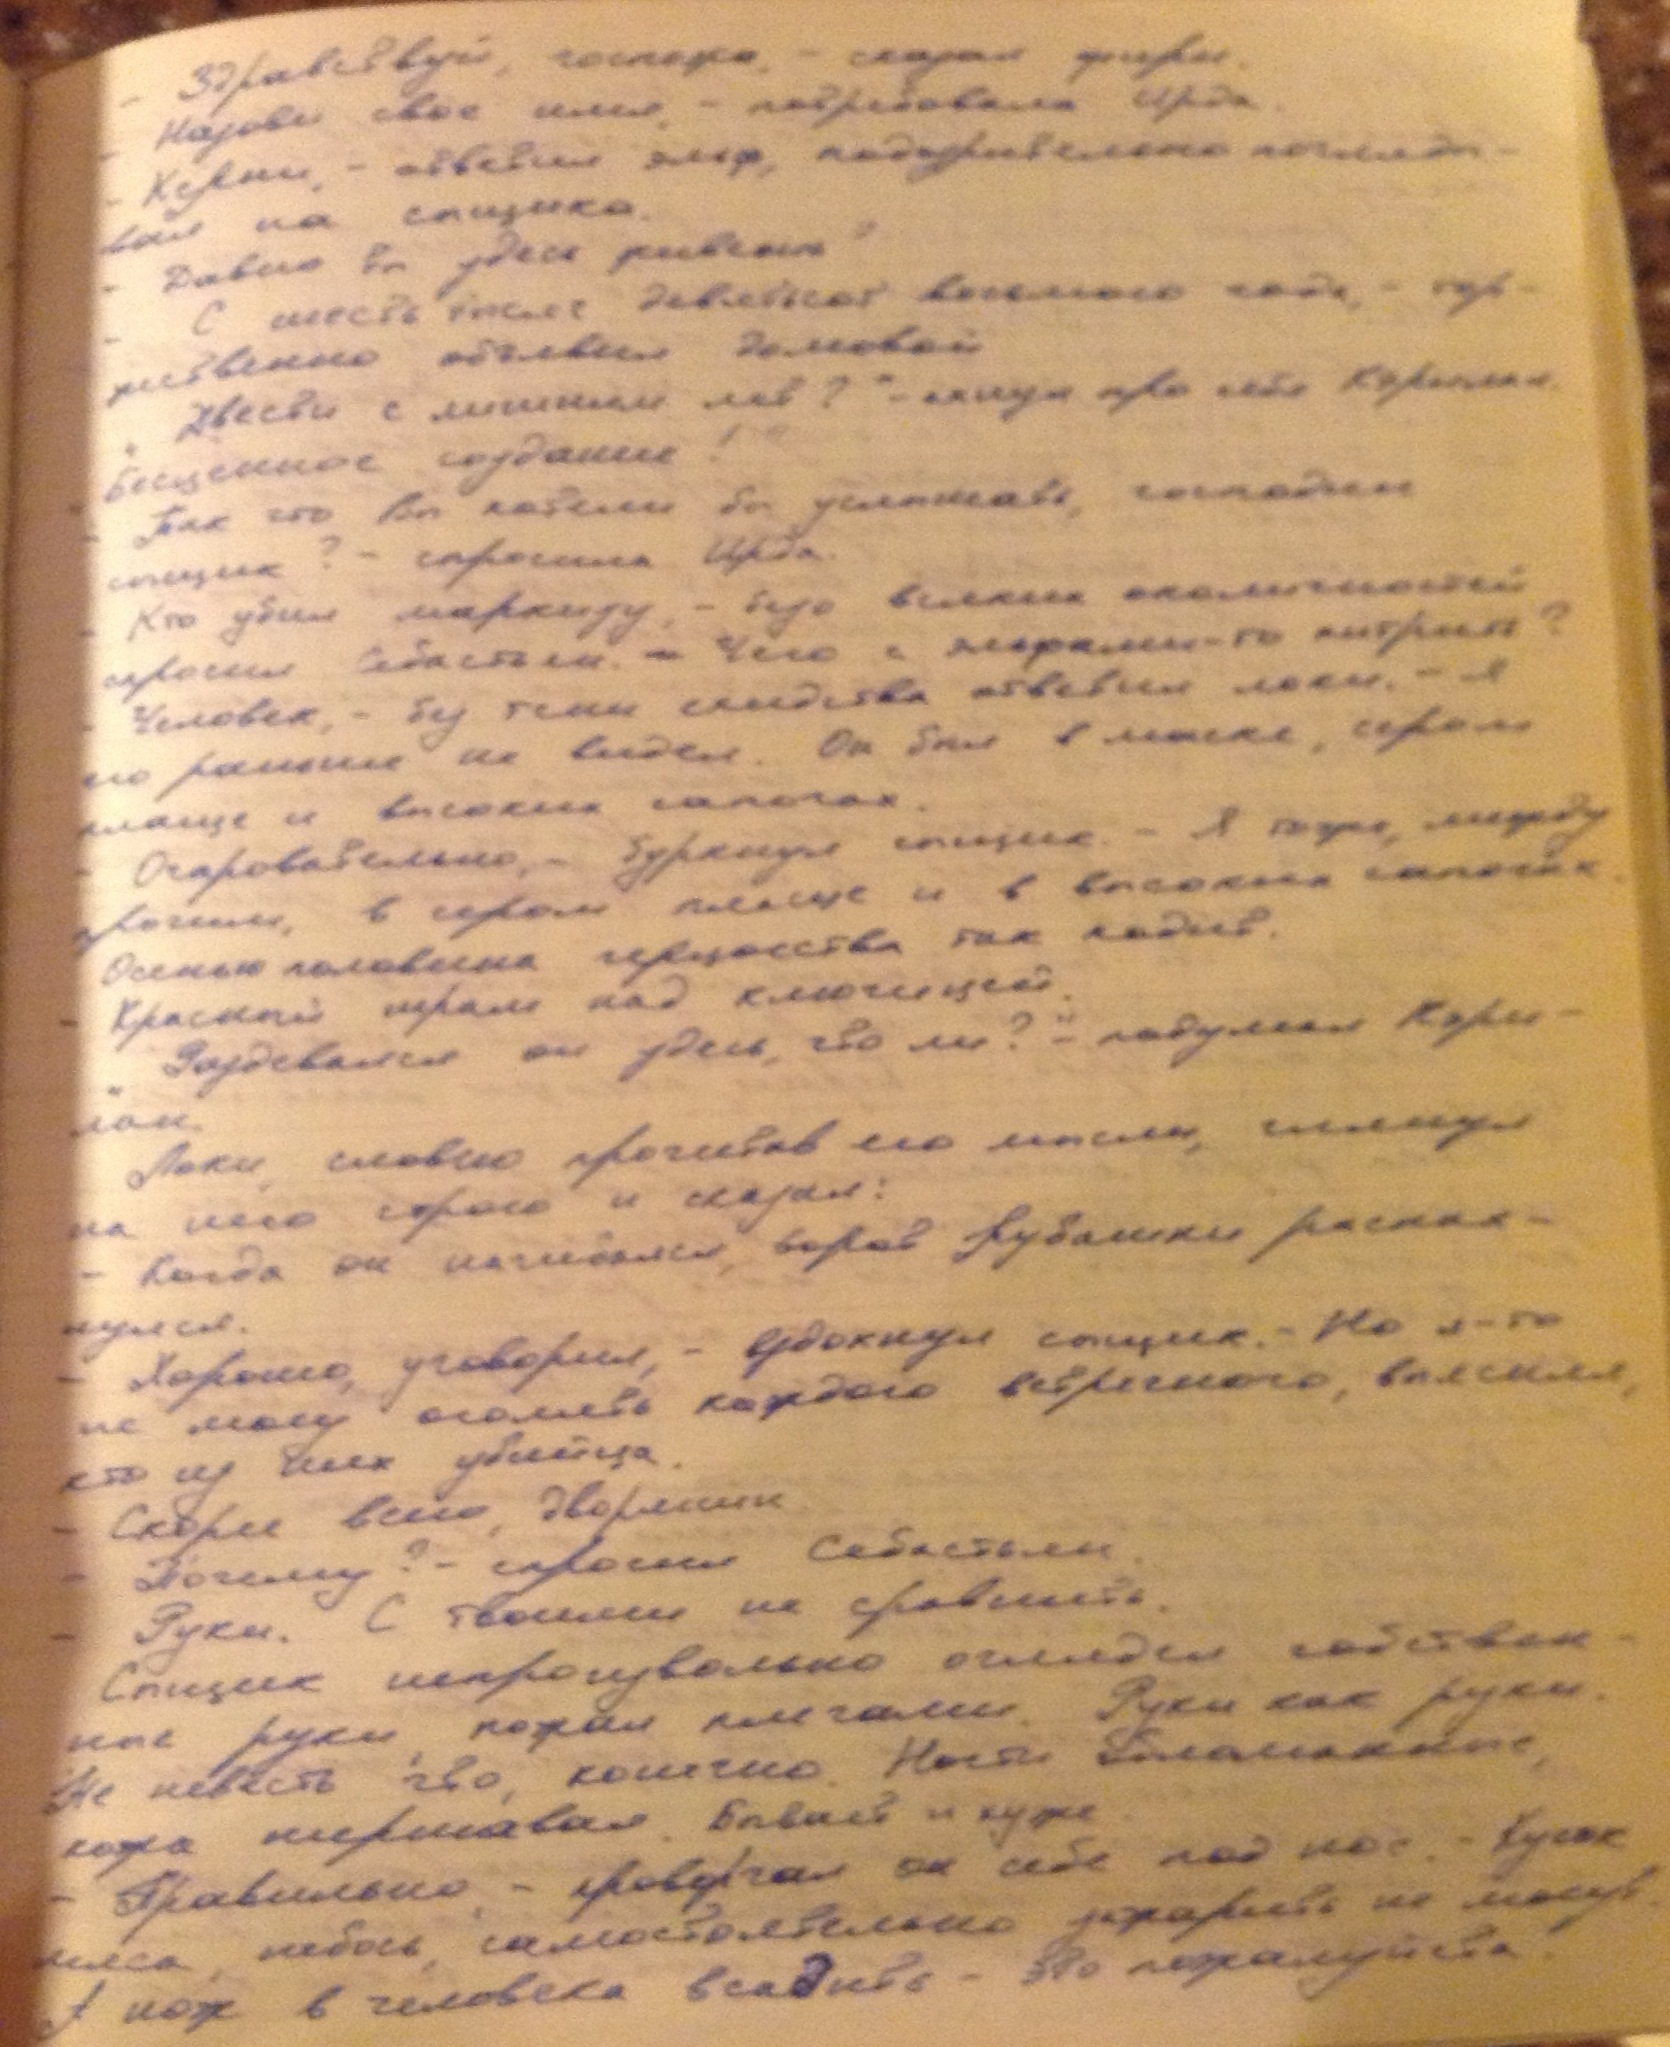 - Здравствуй, госпожа, - сказал фири.
- Назови свое имя, - потребовала Ирда.
- Керни, - ответил эльф, подозрительно погляды-
вая на сыщика.
- Давно ты здесь живешь?
- С шесть тысяч девятьсот восьмого года, - тор-
жественно объявил домовой
„Двести с лишним лет?" - охнул про себя Кормак.
Бесценное создание!"
- Так что Вы хотели бы услышать, господин
сыщик? - спросила Ирда.
- Кто убил маркизу, - безо всяких околичностей
спросил Себастьян. - Чего с эльфами-то хитрить?
- Человек, - без тени ехидства ответил локи. - Я
его раньше не видел. Он был в маске, сером
плаще и высоких сапогах.
- Очаровательно, - буркнул сыщик. - Я тоже, между
прочим, в сером плаще и в высоких сапогах.
Осенью половина герцогства так ходит.
- Красный шрам над ключицей.
„Раздевался он здесь, что ли?" - подумал

Локи, словно прочитав его мысли, глянул
на него строго и сказал:
- Когда он нагибался, ворот рубашки распах-
нулся.
- Хорошо, уговорил, - вздохнул сыщик. - Но я-то
не могу оголять каждого встречного, выясняя,
кто из них убийца.
- Скорее всего, дворянин
- Почему? - спросил Себастьян.
- Руки. С твоими не сравнить.
Сыщик непроизвольно оглядел собствен-
ные руки, пожал плечами. Руки как руки.
Не невесть что, конечно. Ногти обломанные,
кожа шершавая. Бывай и хуже.
- Правильно, - проворчал он себе под нос. - Кусок
мяса, небось, самостоятельно зажарить не могут.
А нож в человека всадить - это пожалуйста.